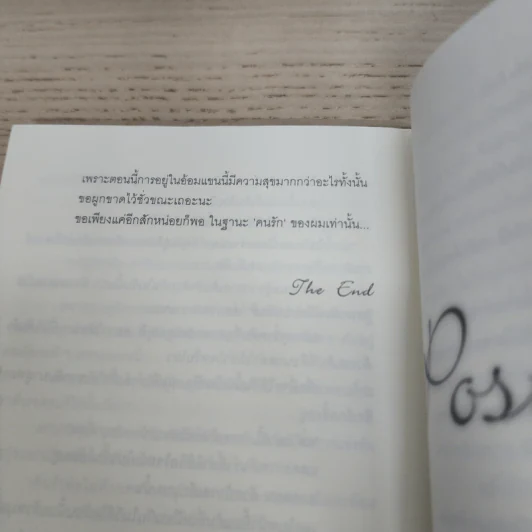 เพราะตอนนี้การอยู่ในอ้อมแขนนี้มีความสุขมากกว่าอะไรทั้งนั้น
ขอผูกขาดไว้ชั่วขณะเถอะนะ
ขอเพียงแค่อีกสักหน่อยก็พอ ในฐานะ 'คนรัก' ของผมเท่านั้น...
The End